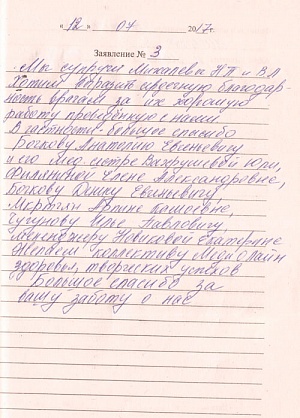 « 12 » 07 2017г.
Заявление № 3
Мы супруги Михалевы Н П и В Л
Хотим выразить огромную благодар-
ность врачам за их хорошую
работу проведённую с нами.
В частности большое спасибо
Бочкову Анатолию Евгеньевичу
и его мед. сестре Вахрушевой Юли,
Елене Александровне,
Бочкову Евгеньевичу,
Мкртчян
Чугунову Илье Павловичу,
Менеджеру Новиковой Екатерине
Желаем коллективу МедиЛайн
здоровья, творческих успехов
Большое спасибо за
вашу заботу о нас